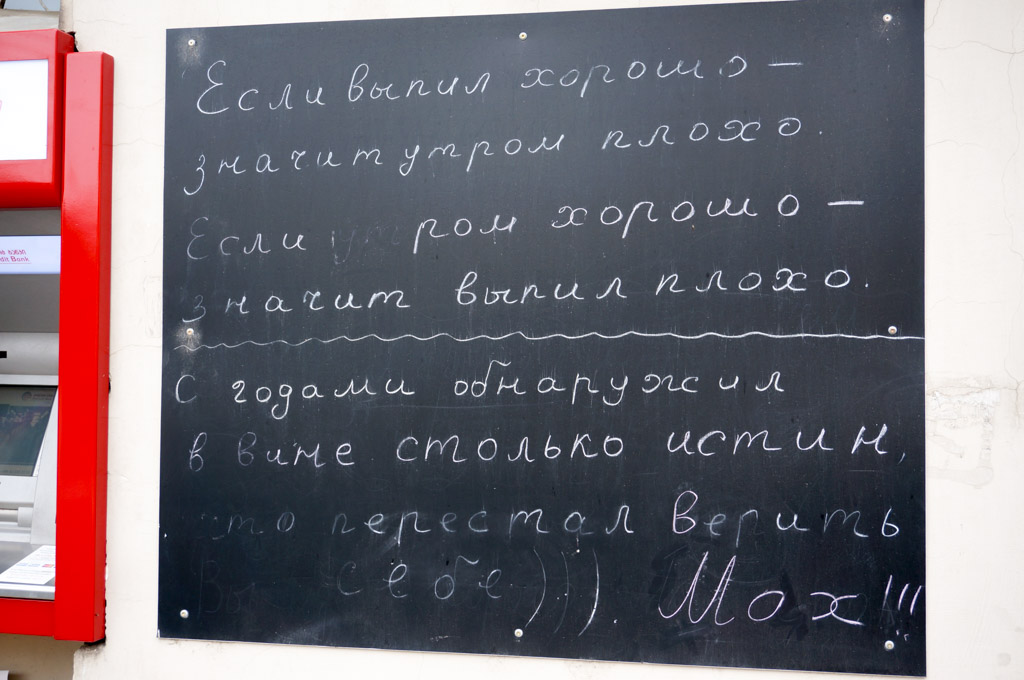 Если выпил хорошо –
значит утром плохо.
Если утром хорошо –
значит выпил плохо.
С годами обнаружил
в вине столько истин,
что перестал верить
себе))). Мох!!!